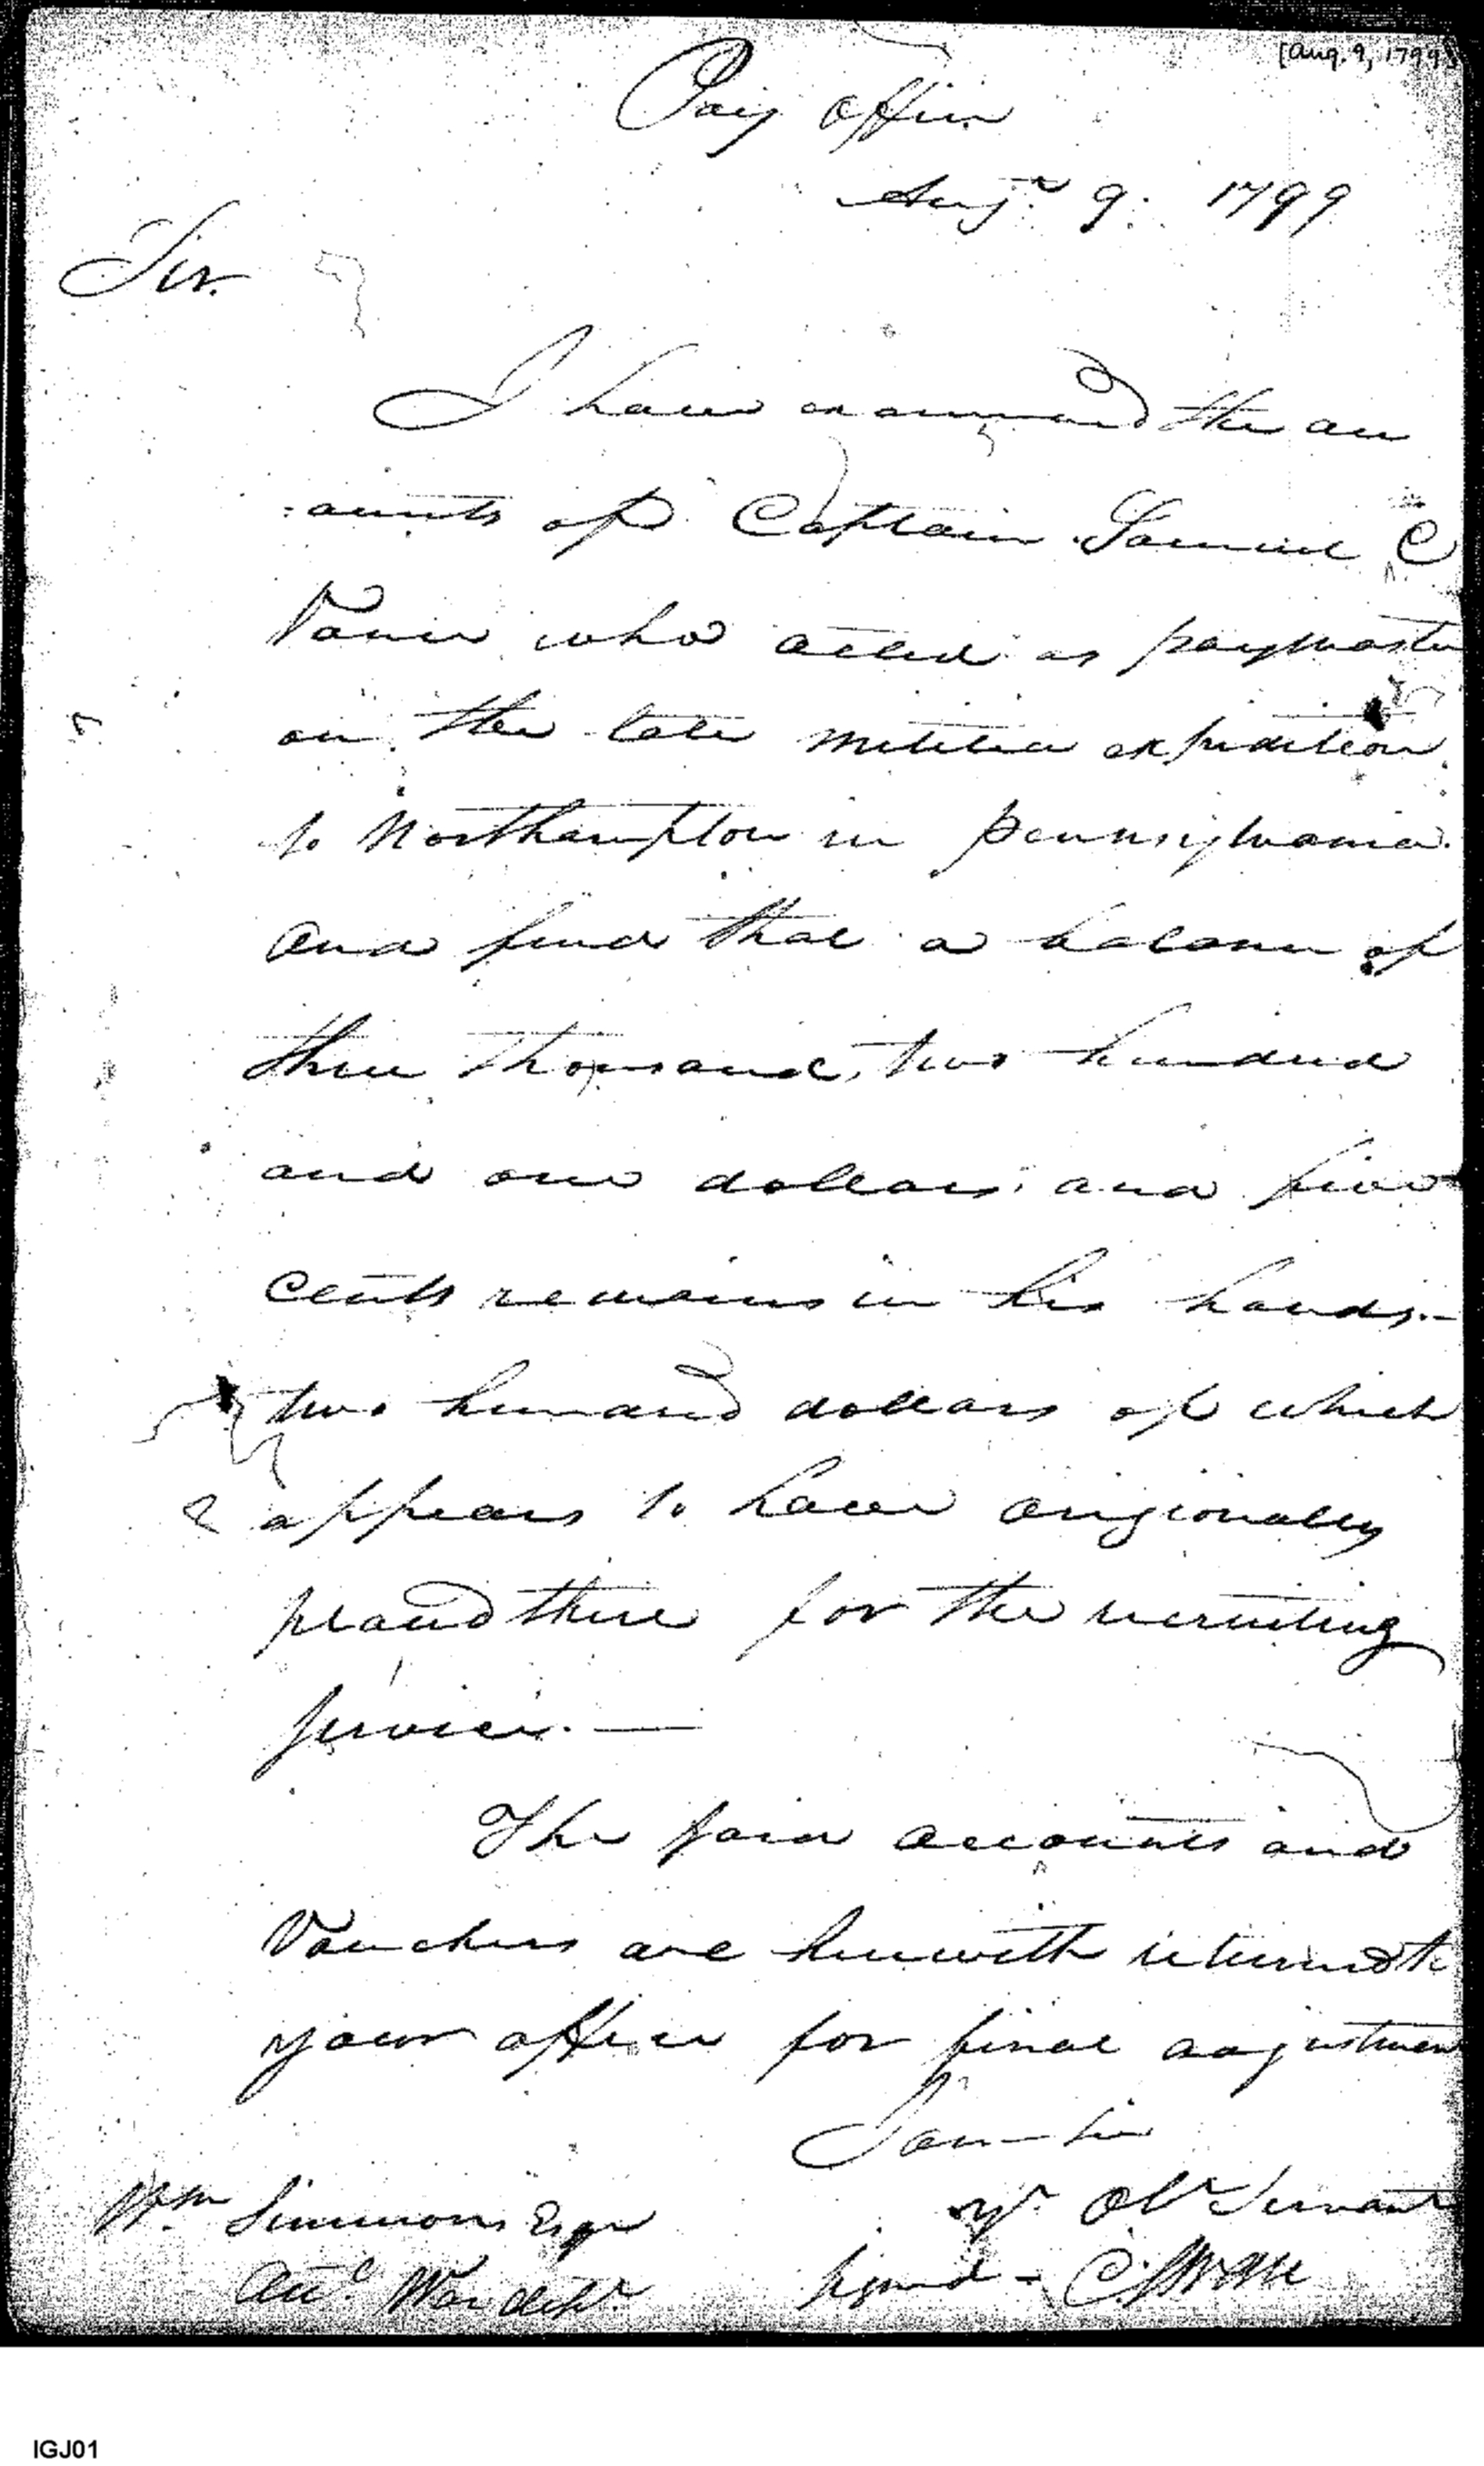 [Aug. 9, 1799]
Pay office
Augt 9. 1799
Sir.
I have examined the acc
=ounts of Captain Samuel C
Vance who acted as paymaster
on the late militia expedition
to Northampton in Pennsylvania.
and find that a balance of
three thousand, two hundred
and one dollars and five
cents remains in his hands.—
two hundred dollars of which
appears to have origionally
placed there for the recruiting
service.—
The said accounts and
Vouchers are herewith returned to
your office for final adjustment
I am Sir
yr. Obt Servant
Wm Simmons Esqr
signed - C. Swan
Acct. War dept.
IGJ01